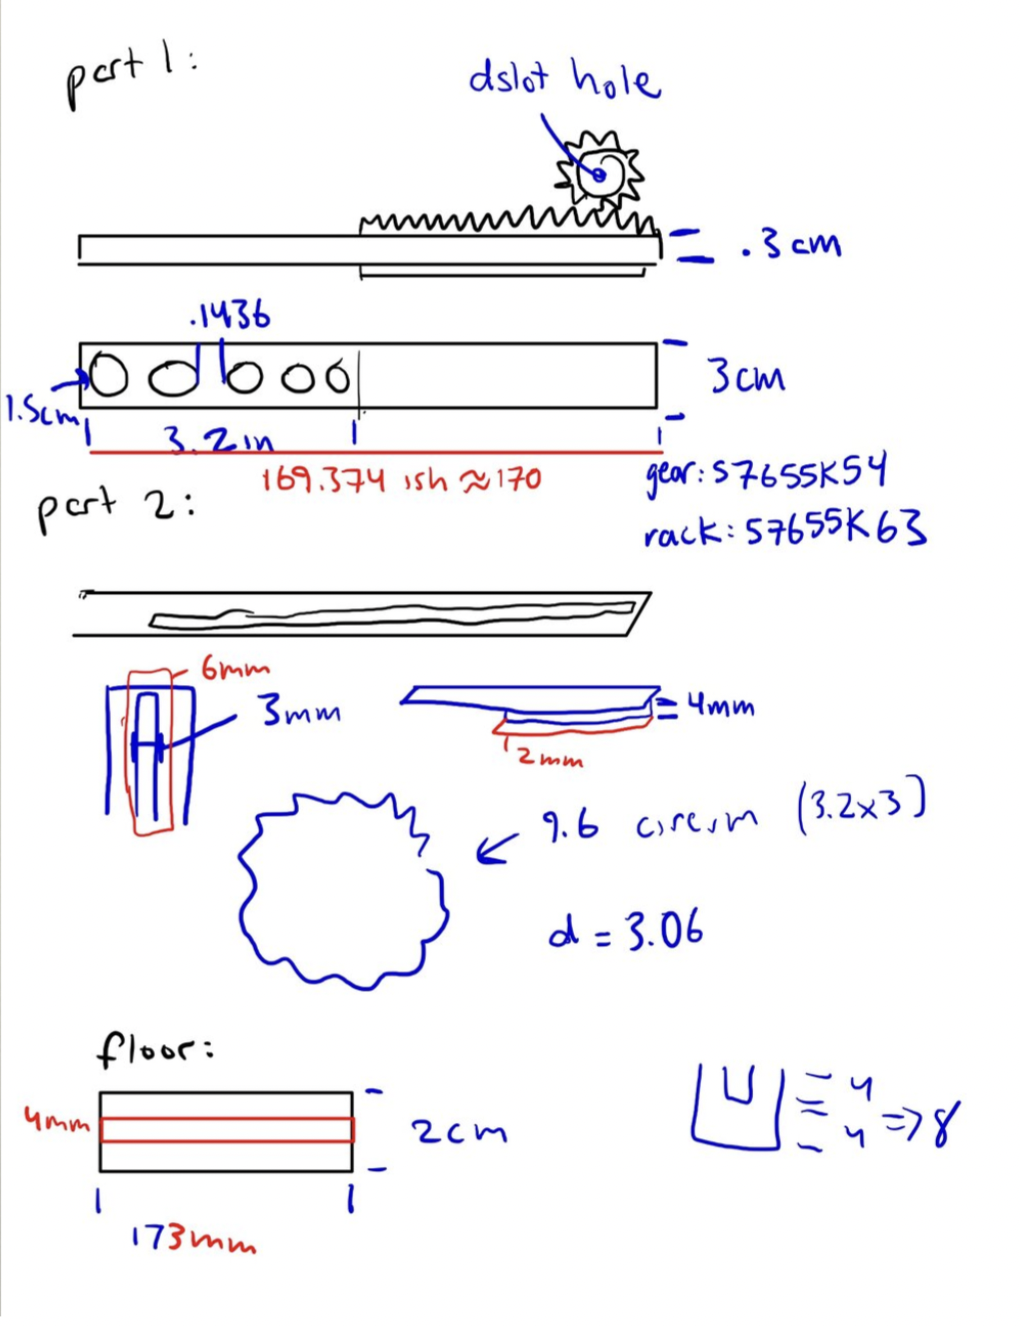 part 1:
dslot hole
.3cm
.1436
1.5cm
3cm
3.2in
169.374 ish ≈170
gear: 57655K54
rack: 57655K63
part 2:
6mm
3mm
4mm
2mm
9.6 circum (3.2x3)
d = 3.06
floor:
4mm
2cm
173mm
4
4 => 8